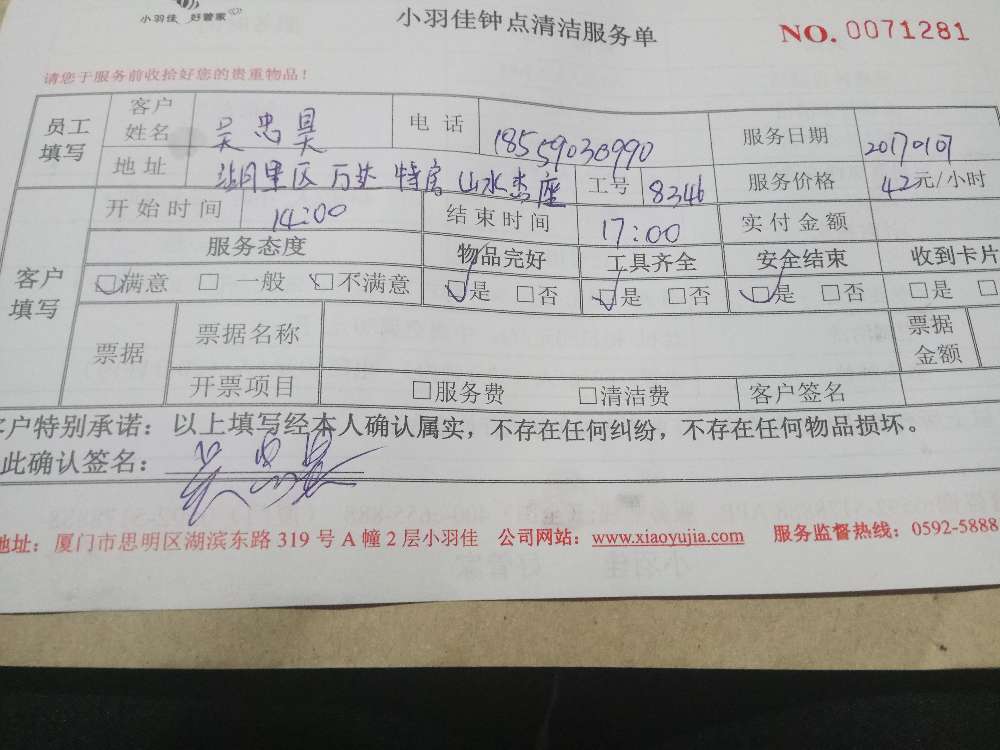 小羽佳 好管家
小羽佳钟点清洁服务单
NO. 0071281
请您于服务前收拾好您的贵重物品！
员工填写 客户姓名 吴忠昊 电话 18559030990 服务日期 20170107
地址 湖里区万达 特房山水杰座 工号 8346 服务价格 42元/小时
客户填写 开始时间 14:00 结束时间 17:00 实付金额
服务态度 物品完好 工具齐全 安全结束 收到卡片
☑满意 □一般 □不满意 ☑是 □否 ☑是 □否 ☑是 □否 □是 □
票据 票据名称 票据金额
开票项目 □服务费 □清洁费 客户签名
客户特别承诺：以上填写经本人确认属实，不存在任何纠纷，不存在任何物品损坏。
此确认签名：吴忠昊
地址：厦门市思明区湖滨东路 319 号 A 幢 2 层小羽佳 公司网站：www.xiaoyujia.com 服务监督热线：0592-5888